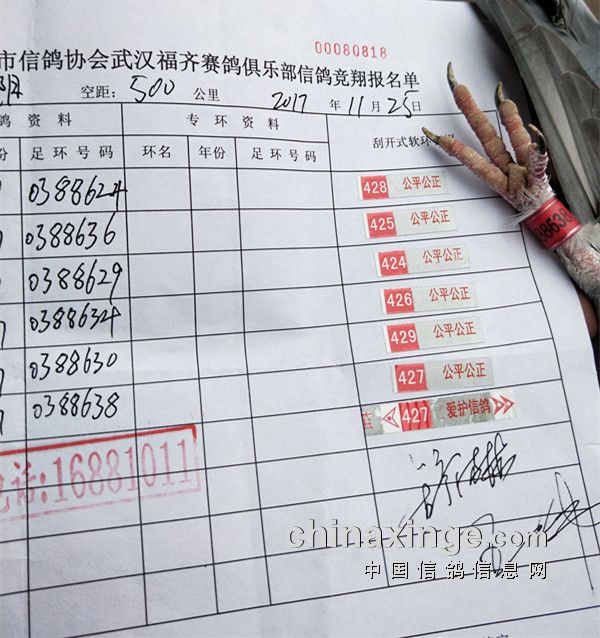 00080818
市信鸽协会武汉福齐赛鸽俱乐部信鸽竞翔报名单
空距: 500 公里 2017 年 11 月 25 日
鸽 资 料 专 环 资 料 刮开式软环
份 足 环 号 码 环名 年份 足 环 号 码
0388624 428 公平公正
0388636 425 公平公正
0388629 424 公平公正
0388634 426 公平公正
0388630 429 公平公正
0388638 427 公平公正
427 爱护信鸽
电话:16881011
88638
chinaxinge.com
中国信鸽信息网